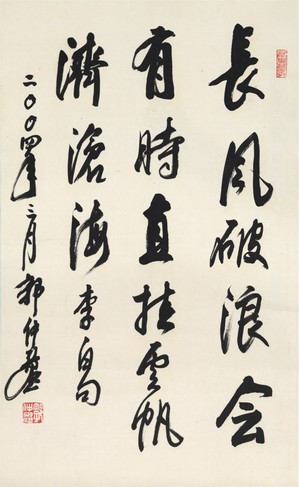 長风破浪会
有時直挂雲帆
濟滄海 李白句
二〇〇四年三月 郭仲